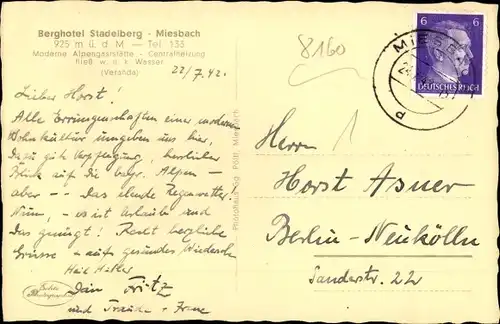 Berghotel Stadelberg - Miesbach
925 m ü. d. M — Tel 135
Moderne Alpengaststätte - Centralheizung
fließ w. u. k Wasser
(Veranda)
22/7.42.
Lieber Horst!
Alle Errungenschaften einer modernen
Wohnkultur umgeben uns hier,
Dazu gute Verpflegung, herrlicher
Blick auf die bayr. Alpen -
aber -- Das elende Regenwetter!
Nun, - es ist Urlaub und
Das genügt! Recht herzliche
Grüsse - auf gesundes Wiederseh
Heil Hitler
Dein Fritz
und Traude -
8160
6 6
DEUTSCHES REICH
MIESB
Herrn
Horst Asner
Berlin-Neukölln
Sanderstr. 22